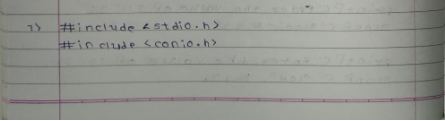 7) #include <stdio.h>
#include <conio.h>